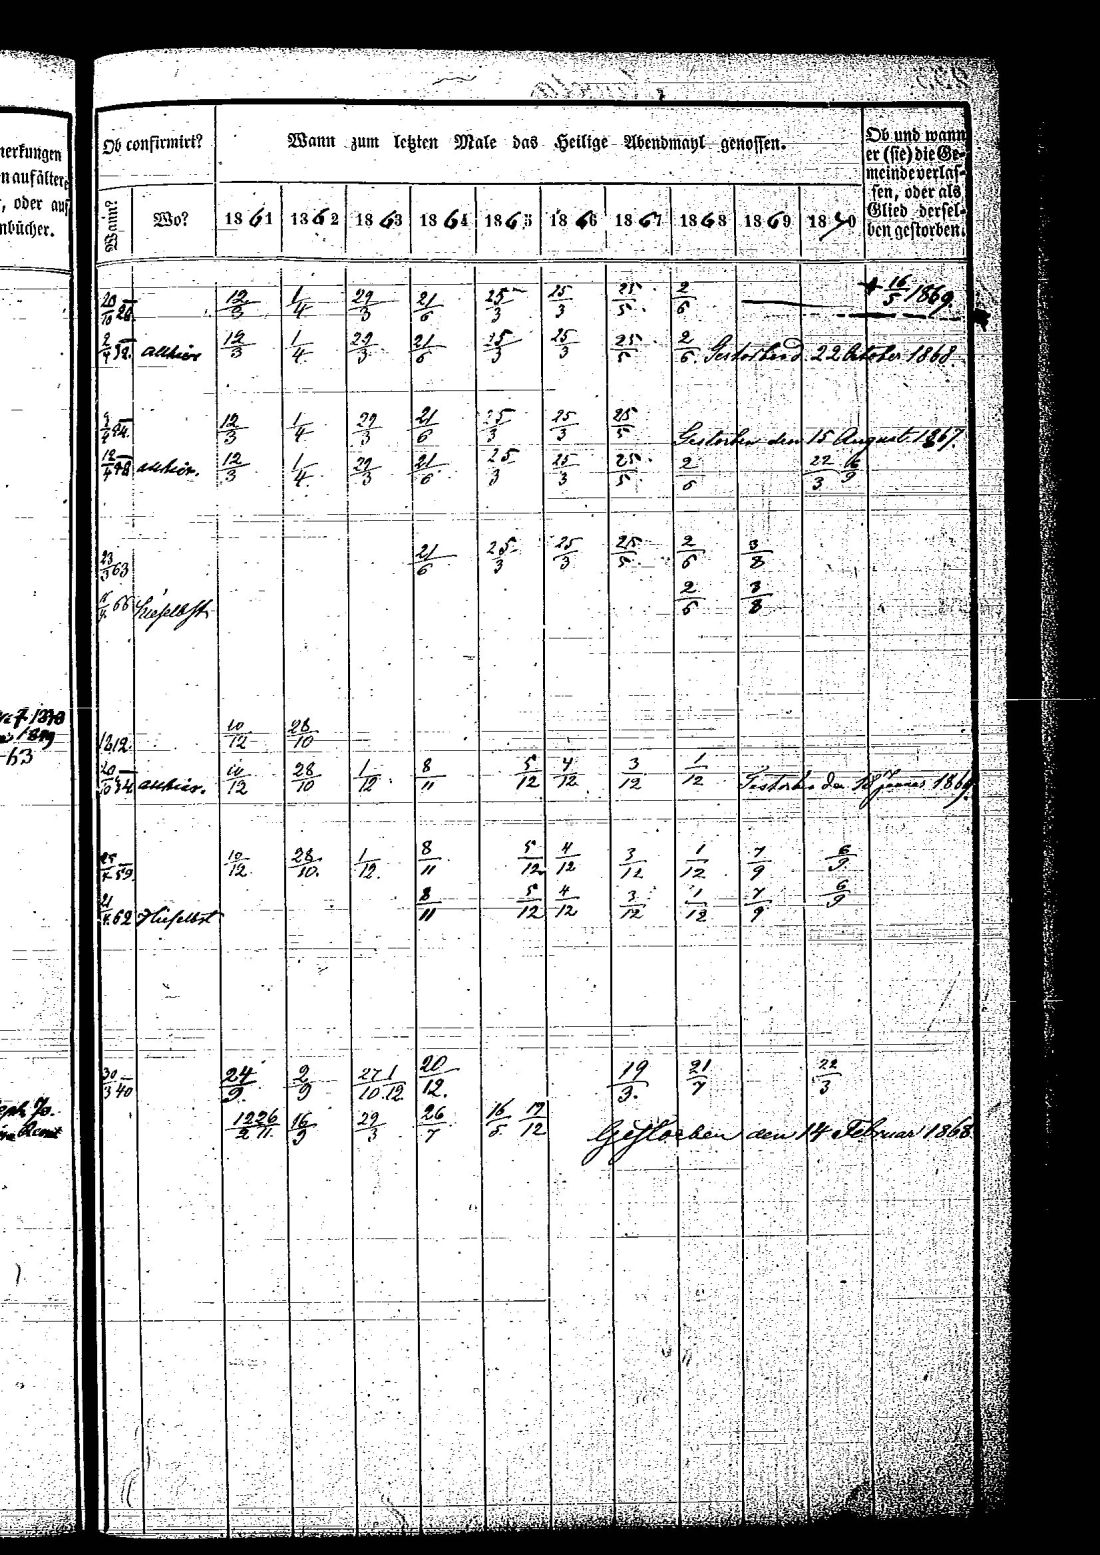 merkungen
en auf ältere
, oder auf
nbücher.
Ob confirmirt?
Wann zum letzten Male das Heilige Abendmahl genossen.
Ob und wann
er (sie) die Ge-
meinde verlas-
sen, oder als
Glied dersel-
ben gestorben.
Wann? Wo? 1861 1862 1863 1864 1865 1866 1867 1868 1869 1870
20/10 28. 12/3 1/4 29/3 21/6 25/3 25/3 25/5 2/6 + 16/5 1869
12/3 1/4 29/3 21/6 25/3 25/3 25/5 2/6 Gestorben d. 22 October 1868.
12/3 1/4 29/3 21/6 25/3 25/3 25/5 Gestorben den 15 August 1867.
12/3 1/4 29/3 21/6 25/3 25/3 25/5 2/6 22/3
23/3 63 21/6 25/3 25/3 25/5 2/6 3/8
66 Hieselbst 2/6 3/8
63
1812. 10/12 28/10
10/12 28/10 1/12 8/11 5/12 4/12 3/12 1/12 Gestorben den Januar 1869.
59. 10/12 28/10. 1/12. 8/11 5/12 4/12 3/12 1/12 7/9 6/9
62 Hieselbst 8/11 5/12 4/12 3/12 1/12 7/9 6/9
30/3 40 24/9. 2/9 27/10 1/12 20/12. 19/3. 21/7 22/3
12/2 26/11. 16/9 29/3 26/7 16/5 17/12 Gestorben den 14 Februar 1868